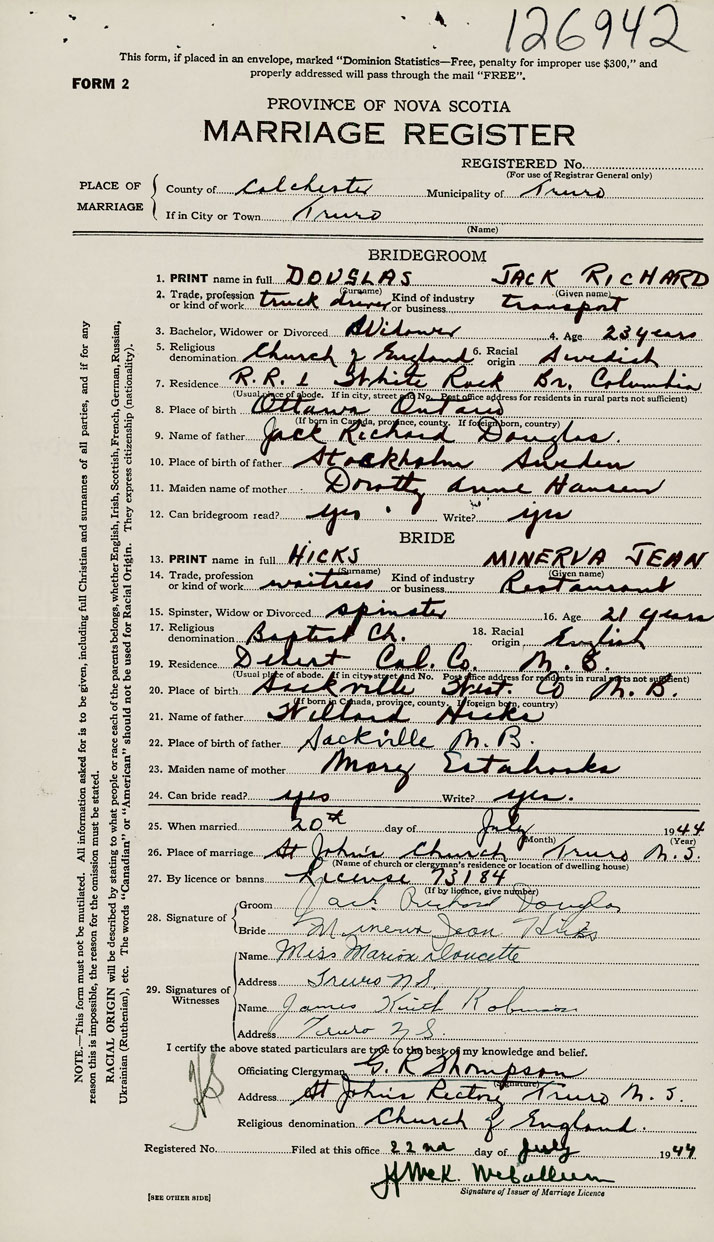 126942
This form, if placed in an envelope, marked "Dominion Statistics—Free, penalty for improper use $300," and
properly addressed will pass through the mail "FREE".
FORM 2
PROVINCE OF NOVA SCOTIA
MARRIAGE REGISTER
REGISTERED No.
(For use of Registrar General only)
PLACE OF MARRIAGE
County of Colchester Municipality of Truro
If in City or Town Truro
(Name)
BRIDEGROOM
1. PRINT name in full DOUGLAS JACK RICHARD
(Surname) (Given name)
2. Trade, profession or kind of work truck driver Kind of industry or business transport
3. Bachelor, Widower or Divorced Widower 4. Age 23 years
5. Religious denomination Church of England 6. Racial origin Swedish
7. Residence R.R. 1 White Rock Br. Columbia
(Usual place of abode. If in city, street and No. Post office address for residents in rural parts not sufficient)
8. Place of birth Ottawa Ontario
(If born in Canada, province, county. If foreign born, country)
9. Name of father Jack Richard Douglas.
10. Place of birth of father Stockholm Sweden
11. Maiden name of mother Dorothy Anne Hansen
12. Can bridegroom read? yes. Write? yes
BRIDE
13. PRINT name in full HICKS MINERVA JEAN
(Surname) (Given name)
14. Trade, profession or kind of work waitress Kind of industry or business Restaurant
15. Spinster, Widow or Divorced spinster 16. Age 21 years
17. Religious denomination Baptist Ch. 18. Racial origin English
19. Residence Desert Col. Co. N. S.
(Usual place of abode. If in city, street and No. Post office address for residents in rural parts not sufficient)
20. Place of birth Sackville West. Co N. B.
(If born in Canada, province, county. If foreign born, country)
21. Name of father Willard Hicks
22. Place of birth of father Sackville N. B.
23. Maiden name of mother Mary Estabrooks
24. Can bride read? yes Write? yes.
25. When married 20th day of July 1944
(Month) (Year)
26. Place of marriage St John's Church Truro N. S.
(Name of church or clergyman's residence or location of dwelling house)
27. By licence or banns License 73184
(If by licence, give number)
28. Signature of
Groom Jack Richard Douglas
Bride Minerva Jean Hicks
29. Signatures of Witnesses
Name Miss Marion Doucette
Address Truro N S.
Name James Keith Robinson
Address Truro N S.
I certify the above stated particulars are true to the best of my knowledge and belief.
Officiating Clergyman G. R Thompson
(Signature)
Address St John's Rectory Truro N. S.
Religious denomination Church of England.
Registered No. Filed at this office 22nd day of July 1944
Signature of Issuer of Marriage Licence
[SEE OTHER SIDE]
NOTE.—This form must not be mutilated. All information asked for is to be given, including full Christian and surnames of all parties, and if for any
reason this is impossible, the reason for the omission must be stated.
RACIAL ORIGIN will be described by stating to what people or race each of the parents belongs, whether English, Irish, Scottish, French, German, Russian,
Ukrainian (Ruthenian), etc. The words "Canadian" or "American" should not be used for Racial Origin. They express citizenship (nationality).